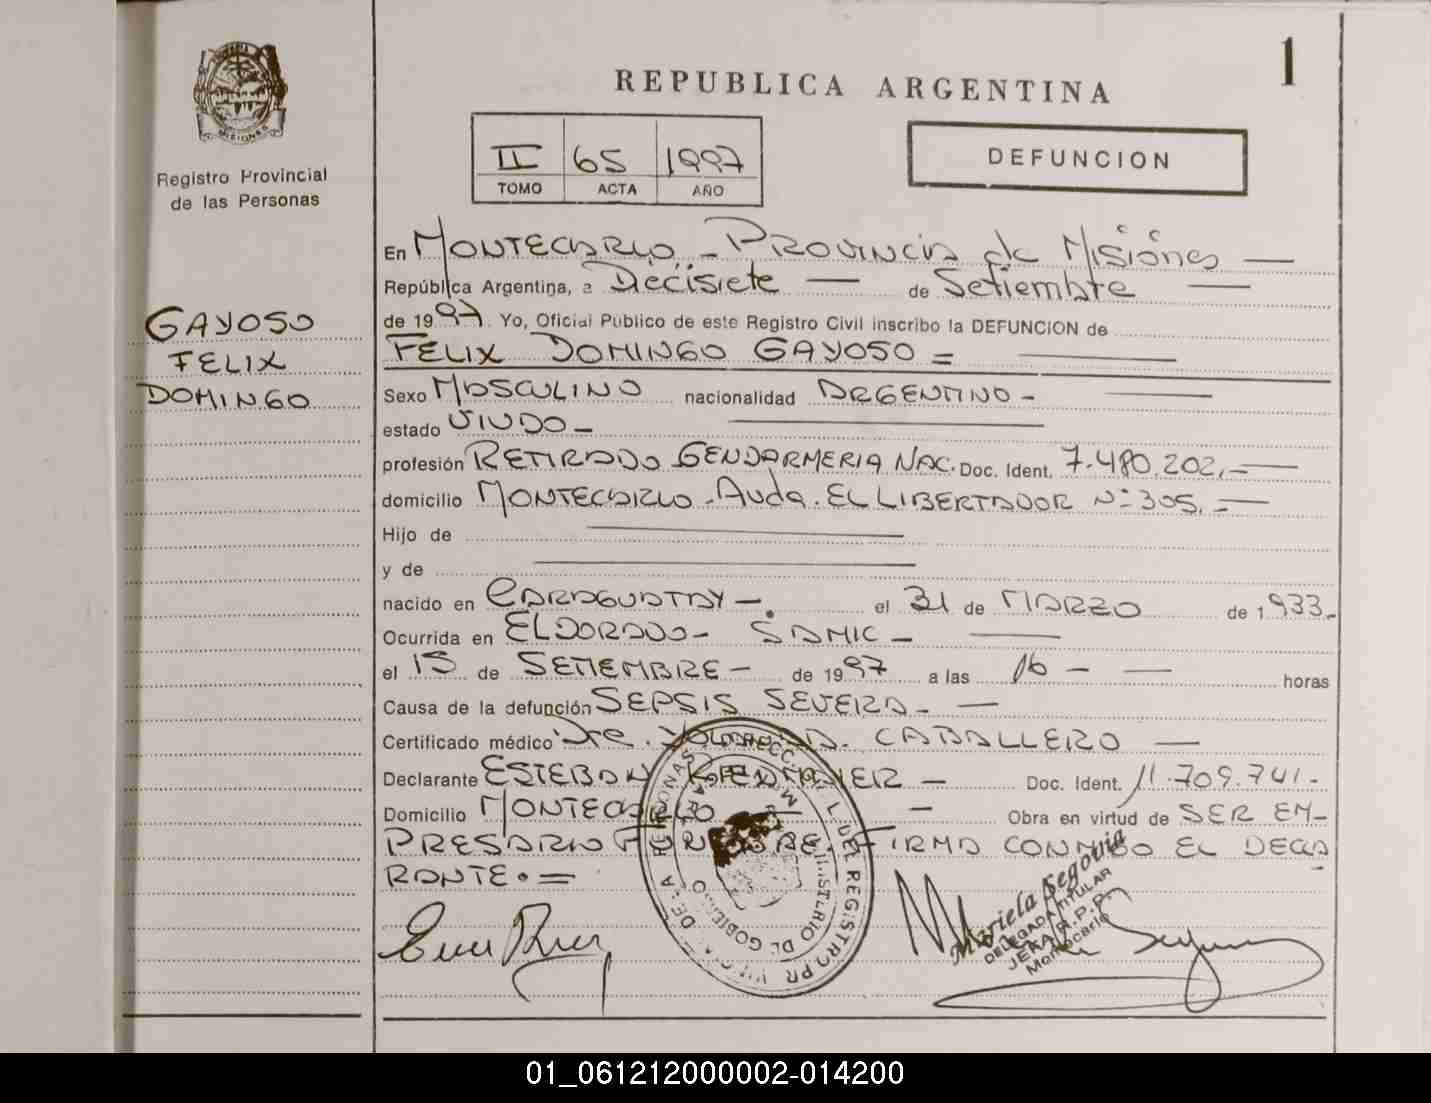 REPUBLICA ARGENTINA
1
MISIONES
Registro Provincial
de las Personas
II 65 1997
TOMO ACTA AÑO
DEFUNCION
GAYOSO
FELIX
DOMINGO
En MONTECARLO - PROVINCIA de Misiones —
República Argentina, a Diecisiete — de Setiembre —
de 1997. Yo, Oficial Público de este Registro Civil inscribo la DEFUNCION de
FELIX DOMINGO GAYOSO =
Sexo MASCULINO nacionalidad ARGENTINO -
estado VIUDO -
profesión RETIRADO GENDARMERIA NAC. Doc. Ident. 7.480.202.-
domicilio MONTECARLO - Avda. EL LIBERTADOR Nº 305.-
Hijo de
y de
nacido en CARAGUATAY -. el 31 de MARZO de 1933.-
Ocurrida en ELDORADO - SAMIC -
el 15 de SETIEMBRE - de 1997 a las 16 - — horas
Causa de la defunción SEPSIS SEVERA. -
Certificado médico Dra. CABALLERO —
Declarante ESTEBAN - Doc. Ident. 11.709.741.-
Domicilio MONTECARLO - Obra en virtud de SER EM-
PRESARIO FUNEBRE. FIRMA CONMIGO EL DECLA
RANTE. =
Mariela Segovia
DELEGADA TITULAR
JEFA R.P.P.
Montecarlo
DEL REGISTRO PR
DE LA PERSONAS
MINISTERIO DE GOBIERNO
01_061212000002-014200